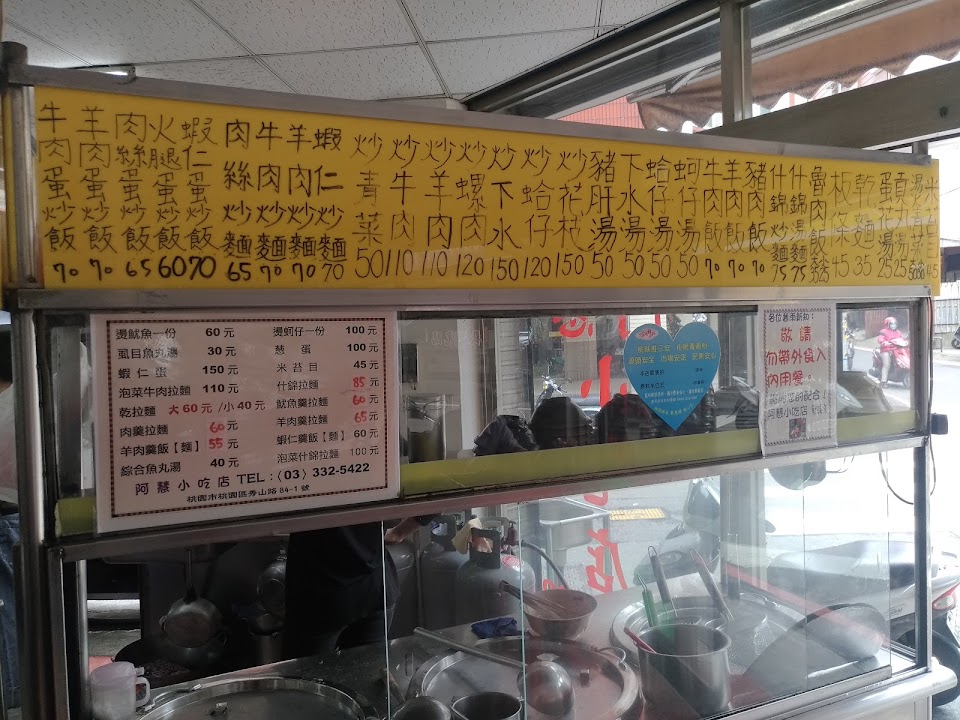 牛肉蛋炒飯 70
羊肉蛋炒飯 70
肉絲蛋炒飯 65
火腿蛋炒飯 60
蝦仁蛋炒飯 70
肉絲炒麵 65
牛肉炒麵 70
羊肉炒麵 70
蝦仁炒麵 70
炒青菜 50
炒牛肉 110
炒羊肉 110
炒螺肉 120
炒下水 150
炒蛤仔 120
炒花枝 150
豬肝湯 50
下水湯 50
蛤仔湯 50
蚵仔湯 50
牛肉飯 70
羊肉飯 70
豬肉飯 70
什錦炒麵 75
什錦湯麵 75
魯肉飯
板條 45
乾麵 35
蛋花湯 25
湯
米苔目 45
燙魷魚一份 60元
虱目魚丸湯 30元
蝦仁蛋 150元
泡菜牛肉拉麵 110元
乾拉麵 大60元/小40元
肉羹拉麵 60元
羊肉羹飯【麵】 55元
綜合魚丸湯 40元
燙蚵仔一份 100元
蔥蛋 100元
米苔目 45元
什錦拉麵 85元
魷魚羹拉麵 60元
羊肉羹拉麵 65元
蝦仁羹飯【麵】 60元
泡菜什錦拉麵 100元
阿慧小吃店 TEL:(03) 332-5422
桃園市桃園區秀山路84-1號
各位舊雨新知:
敬請
勿帶外食入
內用餐。
謝謝您的配合!
阿慧小吃店 敬啟